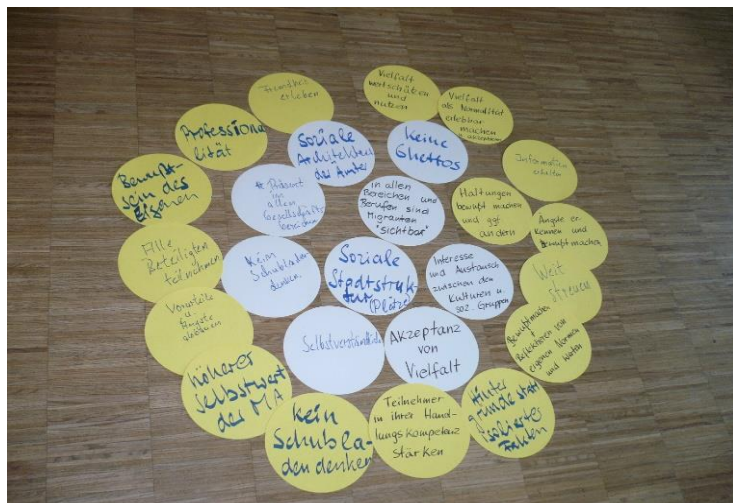 Fremdheit
erleben
Vielfalt
wertschätzen
und
nutzen
Vielfalt
als Normalität
erlebbar
machen
Professiona
lität
Soziale
Architektur
der Ämter
keine
Ghettos
Information
erhalten
Bewußt-
sein des
Eigenen
* Präsent
in
allen
Gesellschafts
bereichen
in allen
Bereichen und
Berufen sind
Migranten
"sichtbar"
Haltungen
bewußt machen
und ggf.
ändern
Ängste er
kennen und
bewußtmachen
Alle
Beteiligten
teilnehmen
Kein
Schubladen
denken
Soziale
Stadtstruk
tur
(Plätze)
Interesse
und Austausch
zwischen den
Kulturen u.
soz. Gruppen
Weit
streuen
Vorurteile
u.
Ängste
abbauen
Selbstverständlich
Akzeptanz
von
Vielfalt
Bewußtmachen
+
Reflektieren von
eigenen Normen
und Werten
höherer
Selbstwert
der MA
kein
Schubla-
dendenken
Teilnehmer
in ihrer Hand-
lungskompetenz
stärken
Hinter
gründe statt
isolierter
Fakten